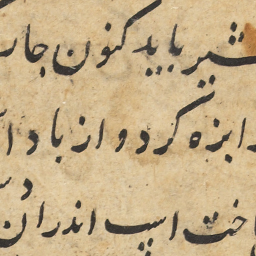 شیر باید کنون جار
ابزه کرد و از باد ا
اخت اسپ اندران